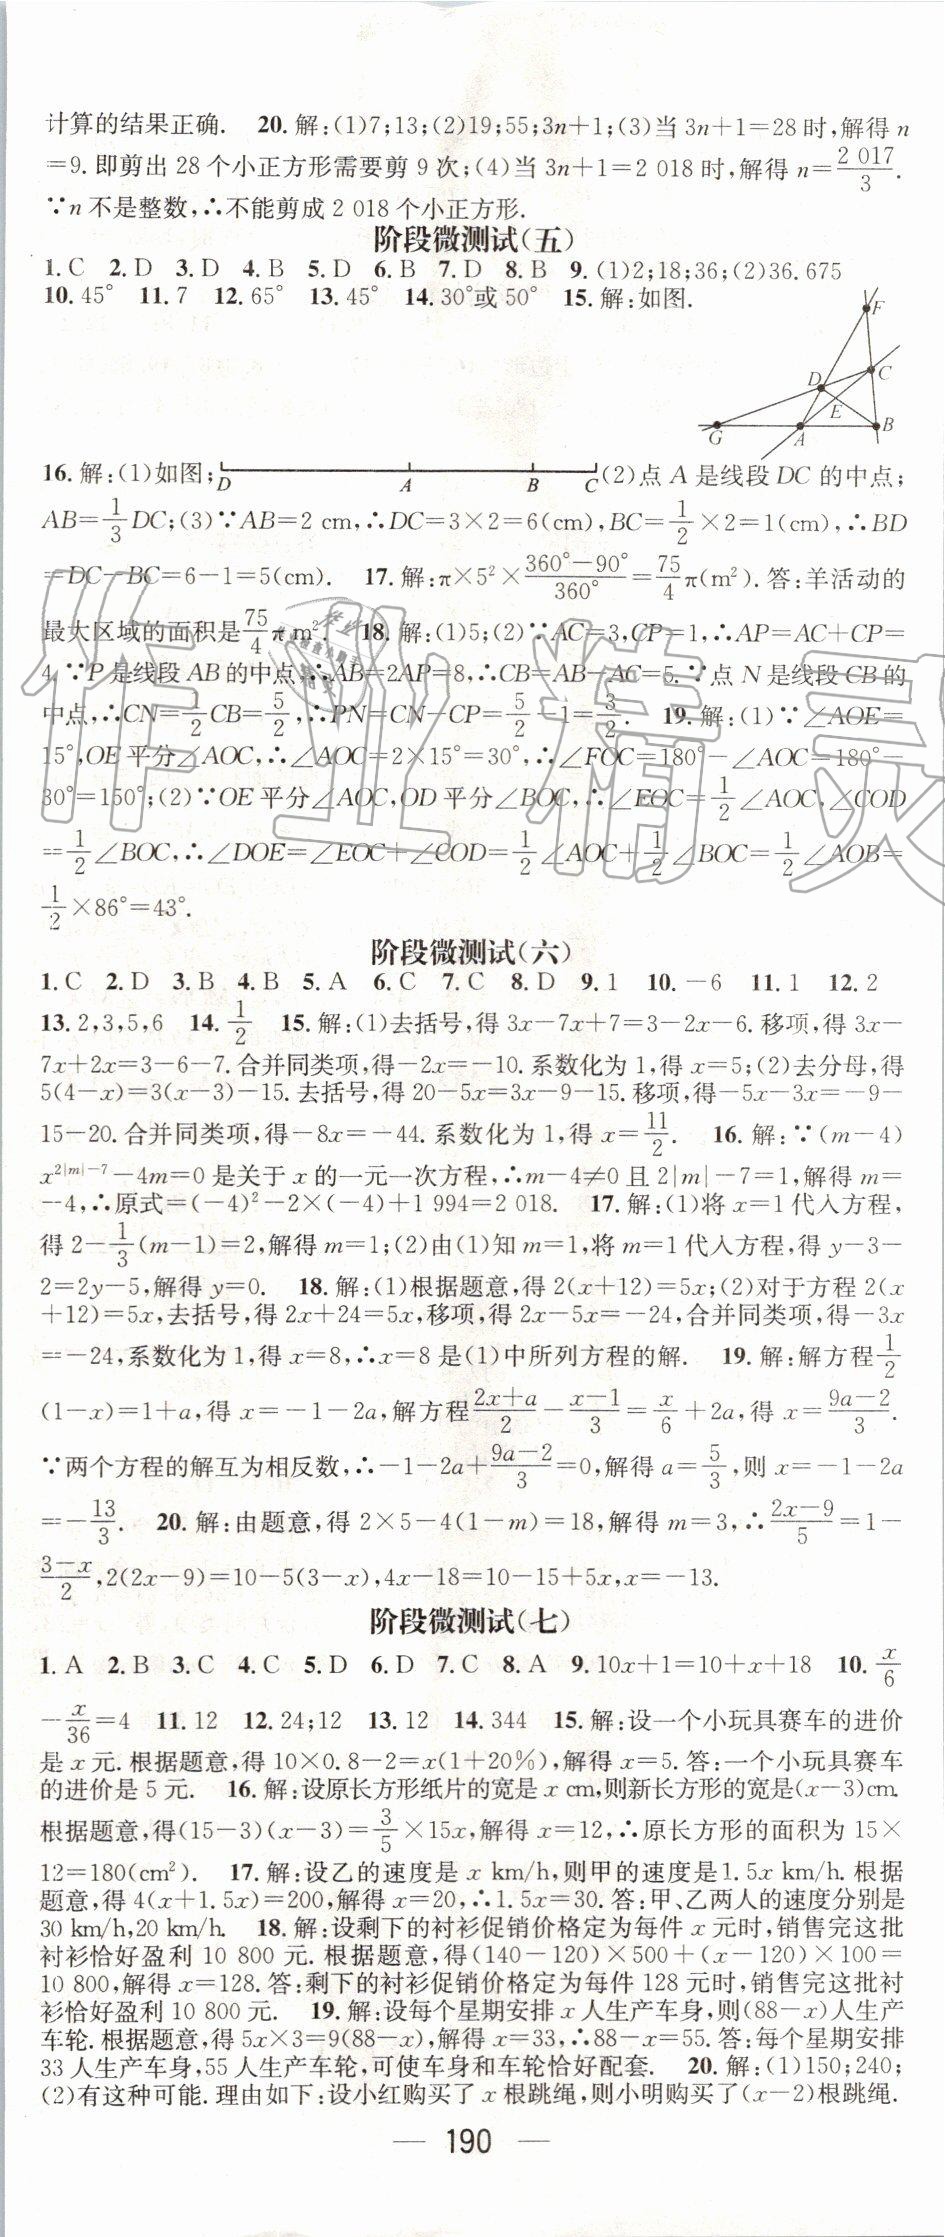 计算的结果正确. 20. 解:(1)7;13;(2)19;55;3n+1;(3)当 3n+1=28 时,解得 n
=9. 即剪出 28 个小正方形需要剪 9 次;(4)当 3n+1=2 018 时,解得 n=2 017/3.
∵n 不是整数,∴不能剪成 2 018 个小正方形.
阶段微测试(五)
1. C 2. D 3. D 4. B 5. D 6. B 7. D 8. B 9. (1)2;18;36;(2)36.675
10. 45° 11. 7 12. 65° 13. 45° 14. 30°或 50° 15. 解:如图.
F
D C
E
G A B
16. 解:(1)如图; D A B C (2)点 A 是线段 DC 的中点;
AB=1/3 DC;(3)∵AB=2 cm,∴DC=3×2=6(cm),BC=1/2×2=1(cm),∴BD
=DC-BC=6-1=5(cm). 17. 解:π×5²×(360°-90°)/360°=75/4 π(m²). 答:羊活动的
最大区域的面积是 75/4 π m². 18. 解:(1)5;(2)∵AC=3,CP=1,∴AP=AC+CP=
4.∵P 是线段 AB 的中点,∴AB=2AP=8,∴CB=AB-AC=5.∵点 N 是线段 CB 的
中点,∴CN=1/2 CB=5/2,∴PN=CN-CP=5/2-1=3/2. 19. 解:(1)∵∠AOE=
15°,OE 平分∠AOC,∴∠AOC=2×15°=30°,∴∠FOC=180°-∠AOC=180°-
30°=150°;(2)∵OE 平分∠AOC,OD 平分∠BOC,∴∠EOC=1/2∠AOC,∠COD
=1/2∠BOC,∴∠DOE=∠EOC+∠COD=1/2∠AOC+1/2∠BOC=1/2∠AOB=
1/2×86°=43°.
阶段微测试(六)
1. C 2. D 3. B 4. B 5. A 6. C 7. C 8. D 9. 1 10. -6 11. 1 12. 2
13. 2,3,5,6 14. 1/2 15. 解:(1)去括号,得 3x-7x+7=3-2x-6. 移项,得 3x-
7x+2x=3-6-7. 合并同类项,得-2x=-10. 系数化为 1,得 x=5;(2)去分母,得
5(4-x)=3(x-3)-15. 去括号,得 20-5x=3x-9-15. 移项,得-5x-3x=-9-
15-20. 合并同类项,得-8x=-44. 系数化为 1,得 x=11/2. 16. 解:∵(m-4)
x^(2|m|-7)-4m=0 是关于 x 的一元一次方程,∴m-4≠0 且 2|m|-7=1,解得 m=
-4,∴原式=(-4)²-2×(-4)+1 994=2 018. 17. 解:(1)将 x=1 代入方程,
得 2-1/3(m-1)=2,解得 m=1;(2)由(1)知 m=1,将 m=1 代入方程,得 y-3-
2=2y-5,解得 y=0. 18. 解:(1)根据题意,得 2(x+12)=5x;(2)对于方程 2(x
+12)=5x,去括号,得 2x+24=5x,移项,得 2x-5x=-24,合并同类项,得-3x
=-24,系数化为 1,得 x=8,∴x=8 是(1)中所列方程的解. 19. 解:解方程 1/2
(1-x)=1+a,得 x=-1-2a,解方程 (2x+a)/2-(x-1)/3=x/6+2a,得 x=(9a-2)/3.
∵两个方程的解互为相反数,∴-1-2a+(9a-2)/3=0,解得 a=5/3,则 x=-1-2a
=-13/3. 20. 解:由题意,得 2×5-4(1-m)=18,解得 m=3,∴(2x-9)/5=1-
(3-x)/2,2(2x-9)=10-5(3-x),4x-18=10-15+5x,x=-13.
阶段微测试(七)
1. A 2. B 3. C 4. C 5. D 6. D 7. C 8. A 9. 10x+1=10+x+18 10. x/6
-x/36=4 11. 12 12. 24;12 13. 12 14. 344 15. 解:设一个小玩具赛车的进价
是 x 元. 根据题意,得 10×0.8-2=x(1+20%),解得 x=5. 答:一个小玩具赛车
的进价是 5 元. 16. 解:设原长方形纸片的宽是 x cm,则新长方形的宽是(x-3)cm.
根据题意,得(15-3)(x-3)=3/5×15x,解得 x=12,∴原长方形的面积为 15×
12=180(cm²). 17. 解:设乙的速度是 x km/h,则甲的速度是1.5x km/h. 根据
题意,得 4(x+1.5x)=200,解得 x=20,∴1.5x=30. 答:甲、乙两人的速度分别是
30 km/h,20 km/h. 18. 解:设剩下的衬衫促销价格定为每件 x 元时,销售完这批
衬衫恰好盈利 10 800 元. 根据题意,得(140-120)×500+(x-120)×100=
10 800,解得 x=128. 答:剩下的衬衫促销价格定为每件 128 元时,销售完这批衬
衫恰好盈利 10 800 元. 19. 解:设每个星期安排 x 人生产车身,则(88-x)人生产
车轮. 根据题意,得 5x×3=9(88-x),解得 x=33,∴88-x=55. 答:每个星期安排
33 人生产车身,55 人生产车轮,可使车身和车轮恰好配套. 20. 解:(1)150;240;
(2)有这种可能. 理由如下:设小红购买了 x 根跳绳,则小明购买了(x-2)根跳绳.
190
作业精灵